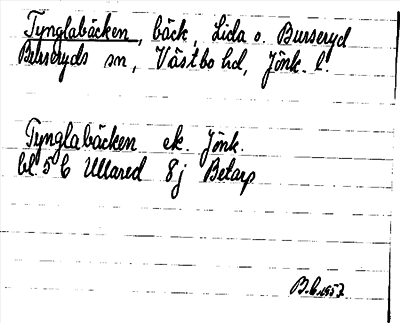 Tynglabäcken, bäck, Lida o. Burseryd
Burseryds sn, Västbo hd, Jönk. l.
Tynglabäcken ek. Jönk.
bl. 5 C Ullared 8j Betarp
B.C. 1957